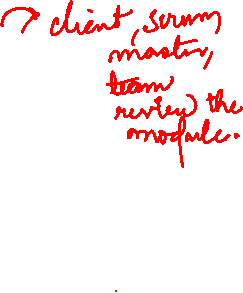 → client, scrum
master,
team
review the
module.